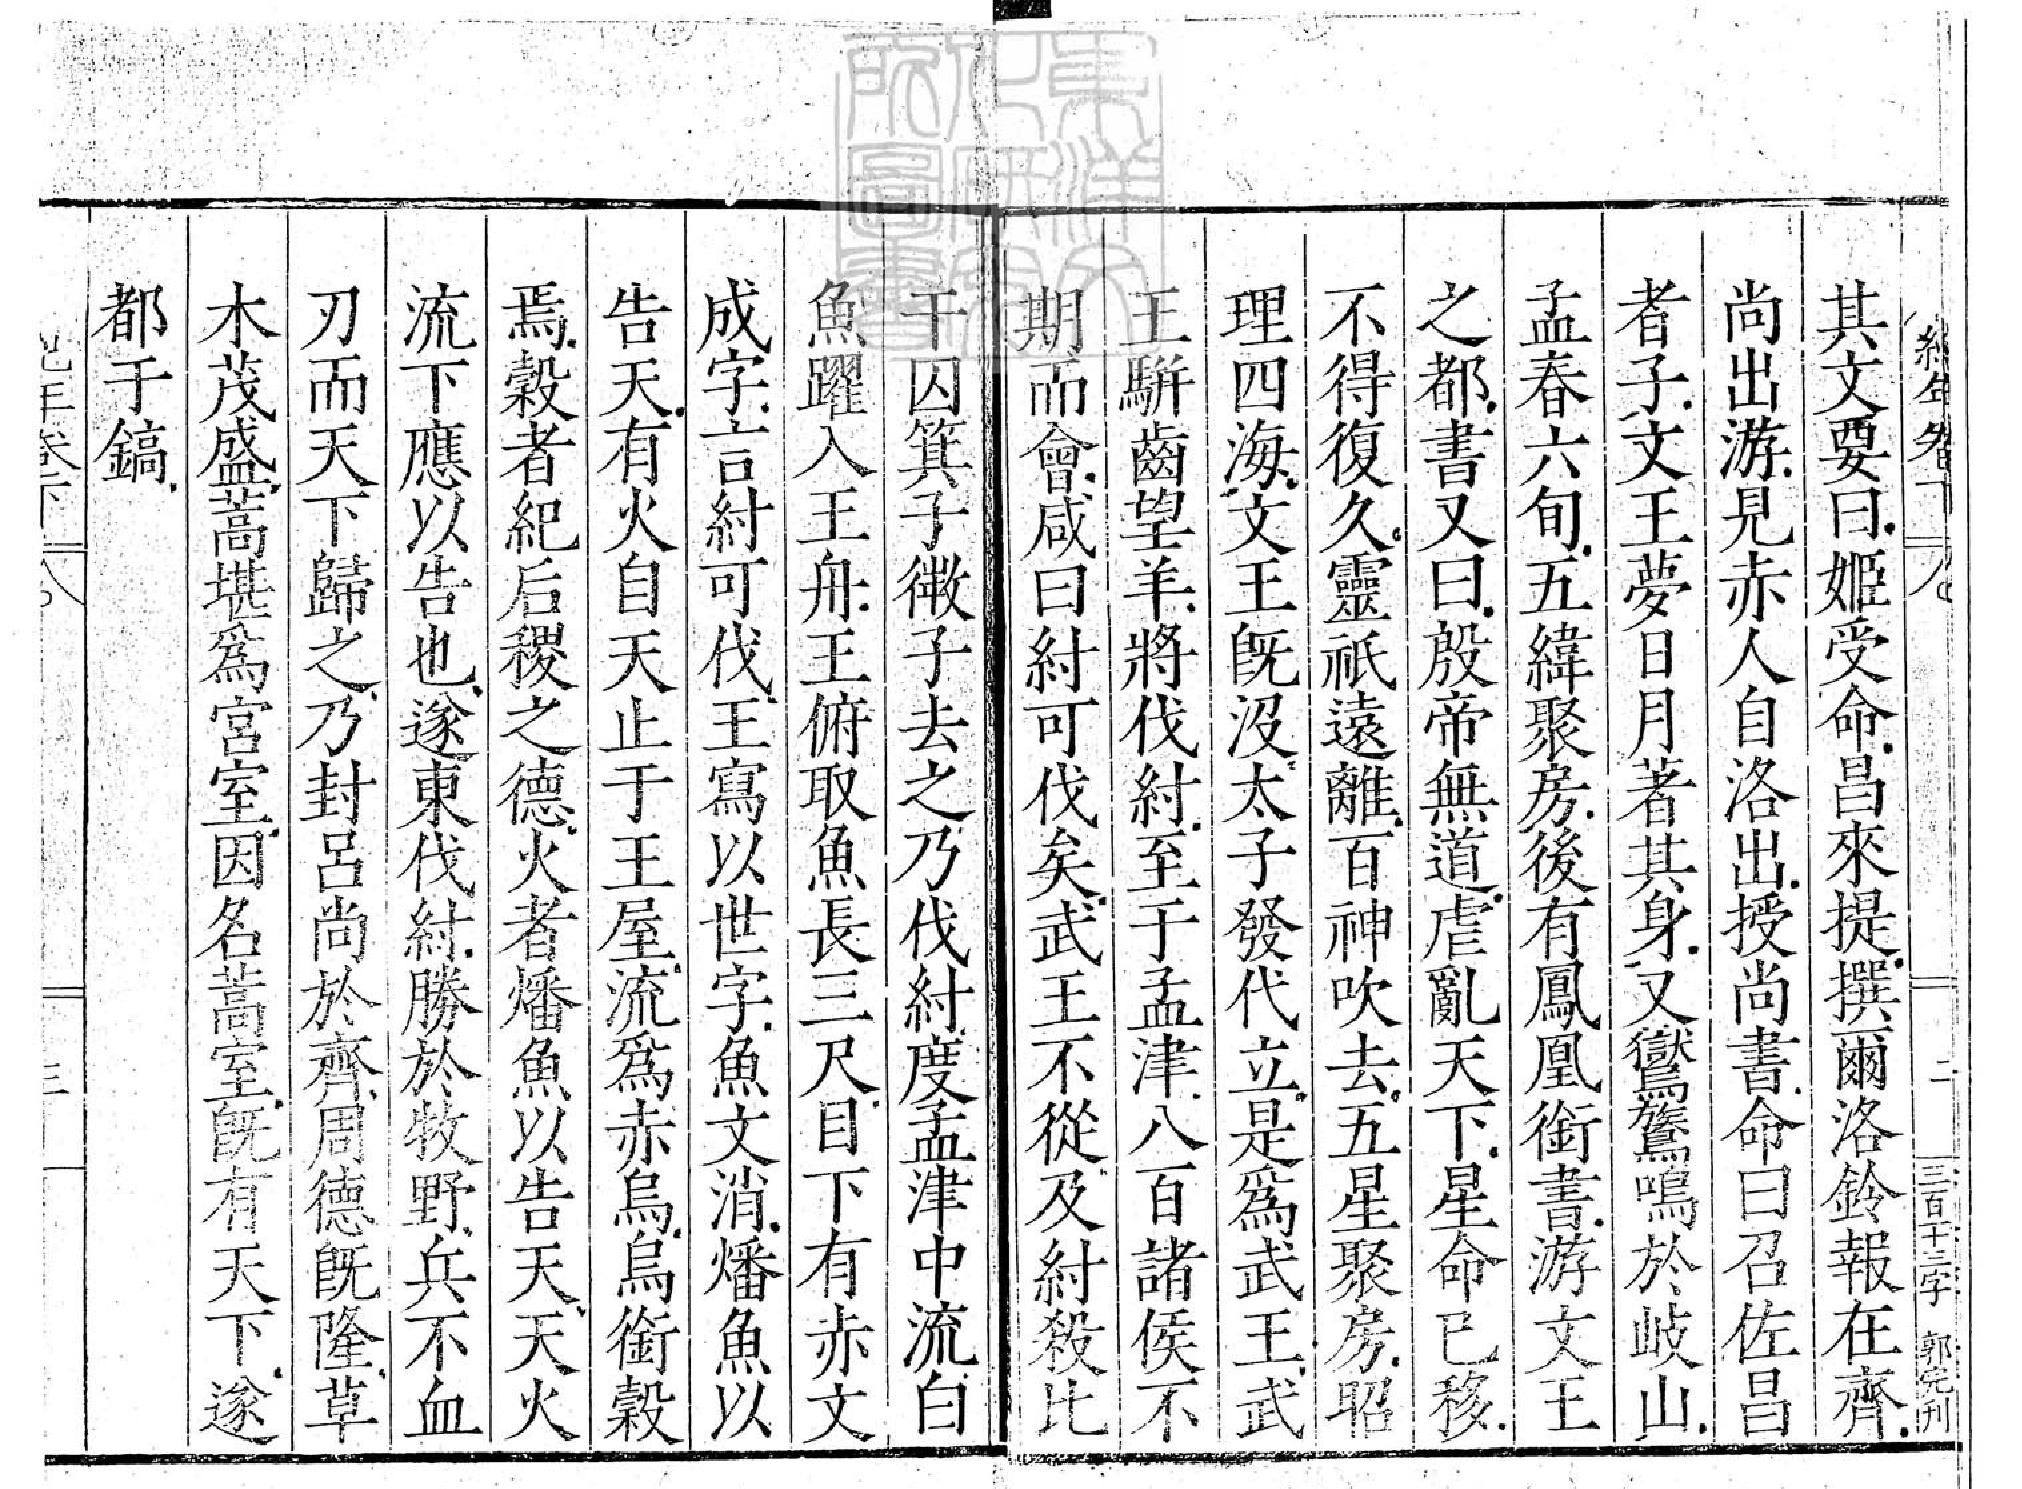 紀年卷下 八 二 三百十三字 郭完刊
其文要曰姬受命昌來提撰爾洛鈴報在齊
尚出游見赤人自洛出授尚書命曰召佐昌
者子文王夢日月著其身又鸑鷟鳴於岐山
孟春六旬五緯聚房後有鳳凰銜書游文王
之都書又曰殷帝無道虐亂天下星命已移
不得復久靈祇遠離百神吹去五星聚房昭
理四海文王既沒太子發代立是爲武王武
王駢齒望羊將伐紂至于孟津八百諸侯不
期而會咸曰紂可伐矣武王不從及紂殺比
干囚箕子微子去之乃伐紂度孟津中流白
魚躍入王舟王俯取魚長三尺目下有赤文
成字言紂可伐王寫以世字魚文消燔魚以
告天有火自天止于王屋流爲赤烏烏銜穀
焉穀者紀后稷之德火者燔魚以告天天火
流下應以告也遂東伐紂勝於牧野兵不血
刃而天下歸之乃封呂尚於齊周德既隆草
木茂盛蒿堪爲宮室因名蒿室既有天下遂
都于鎬
紀年卷下 八 三